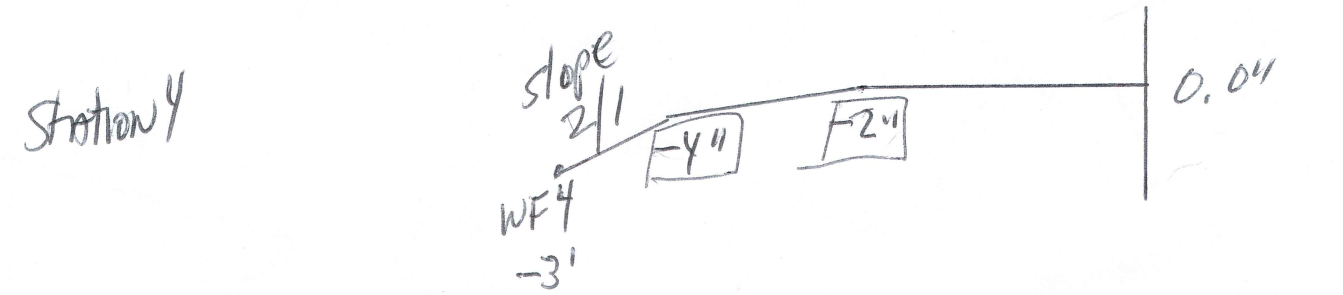 Station 4
slope
2/1
-4"
-2"
0.0"
WF4
-3'